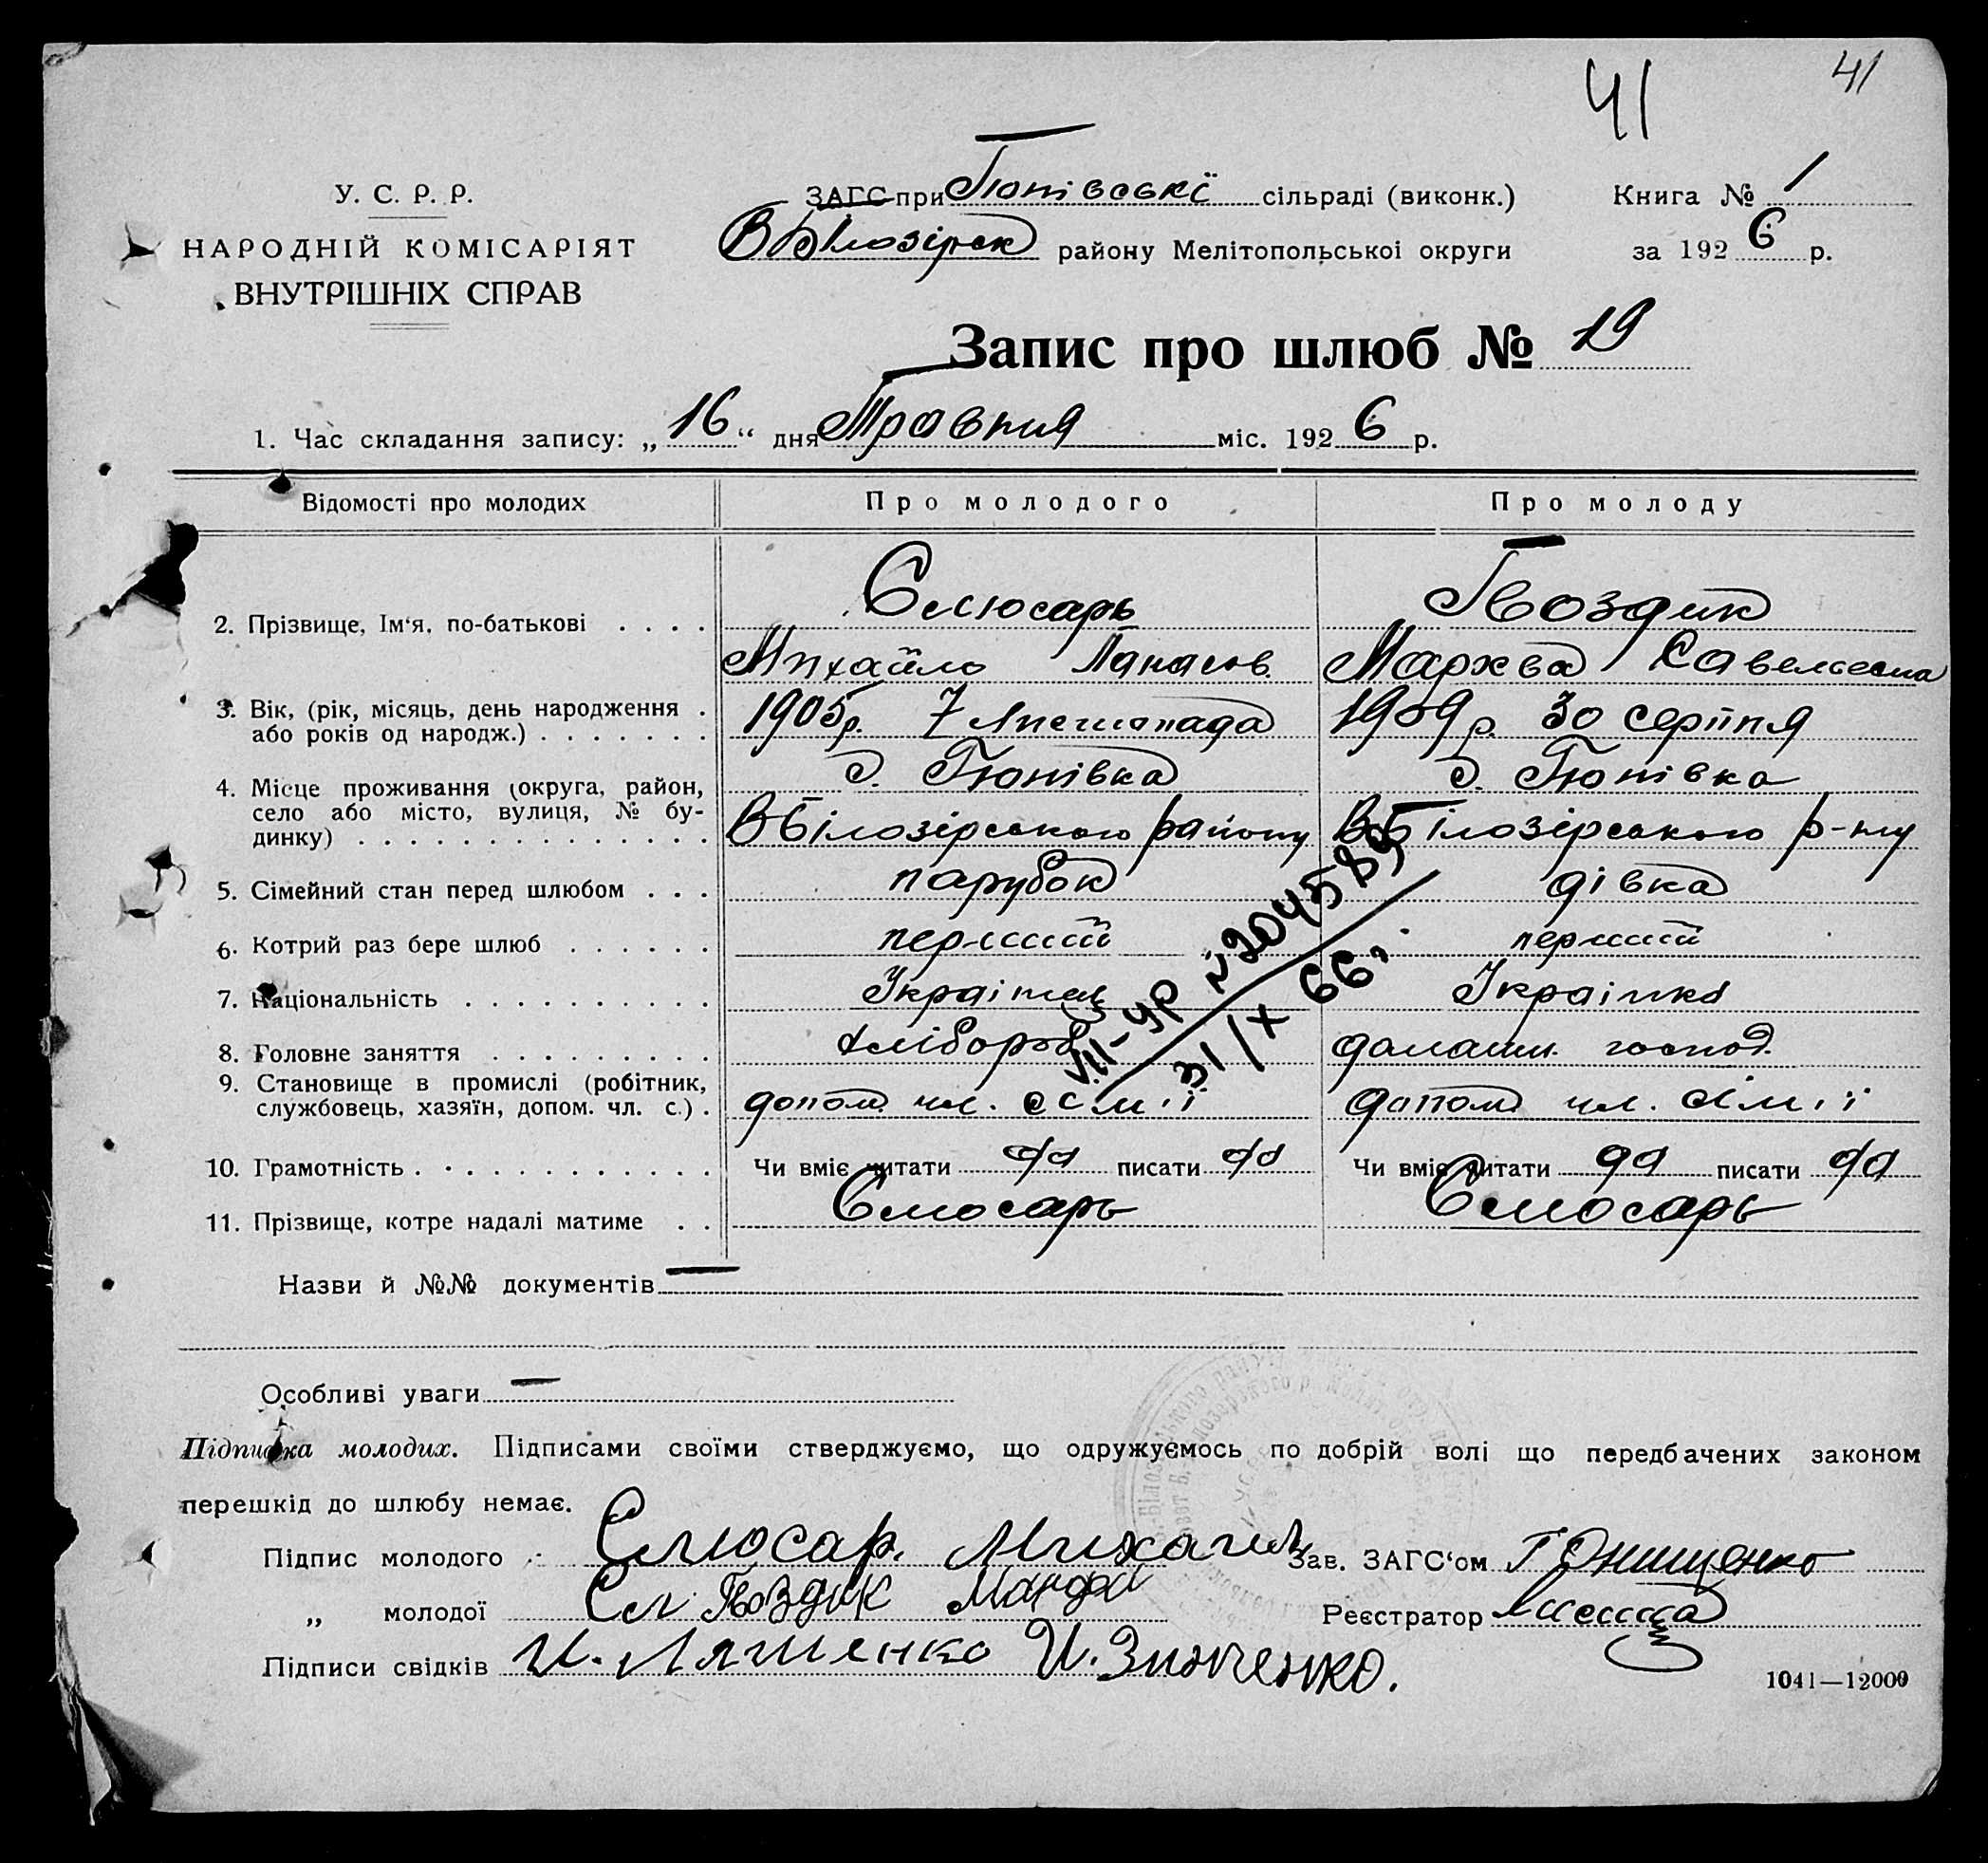 41
41
У. С. Р. Р.
НАРОДНІЙ КОМІСАРІЯТ
ВНУТРІШНІХ СПРАВ
ЗАГС при Гюнівські сільраді (виконк.)
ВБілозірск району Мелітопольськоі округи
Книга № 1
за 1926 р.
Запис про шлюб № 19
1. Час складання запису: „16“ дня Травня міс. 1926 р.
Відомості про молодих
Про молодого
Про молоду
2. Прізвище, Ім‘я, по-батькові . . . .
Слюсарь
Гвоздик
Михайло Панасов.
Мархва Савельевна
3. Вік, (рік, місяць, день народження .
або років од народж.) . . . . . . .
1905р. 7 Листопада
1909р. 30 серпня
4. Місце проживання (округа, район,
село або місто, вулиця, № бу-
динку) . . . . . . . . . . . . . .
с. Гюнівка
ВБілозірського району
с. Гюнівка
ВБілозірського р-ну
5. Сімейний стан перед шлюбом . . .
парубок
дівка
6. Котрий раз бере шлюб . . . . . .
перший
перший
7. Національність . . . . . . . . . .
Українець
Українка
8. Головне заняття . . . . . . . . .
хлібороб
домашн. господ.
9. Становище в промислі (робітник,
службовець, хазяїн, допом. чл. с.) .
допом. чл. сім'ї
допом чл. сім'ї
VIII-УР №204589
31/X 66г.
10. Грамотність . . . . . . . . . . . .
Чи вміє читати да писати да
Чи вміє читати да писати да
11. Прізвище, котре надалі матиме . .
Слюсарь
Слюсарь
Назви й №№ документів —
Особливі уваги —
Підписка молодих. Підписами своїми стверджуємо, що одружуємось по добрій волі що передбачених законом
перешкід до шлюбу немає.
Підпис молодого Слюсар. Михаил
Зав. ЗАГС‘ом Г Онищенко
„ молодої Сл Гвоздик
Реєстратор
Підписи свідків И. Ляшенко И. Зинченко.
1041—12000